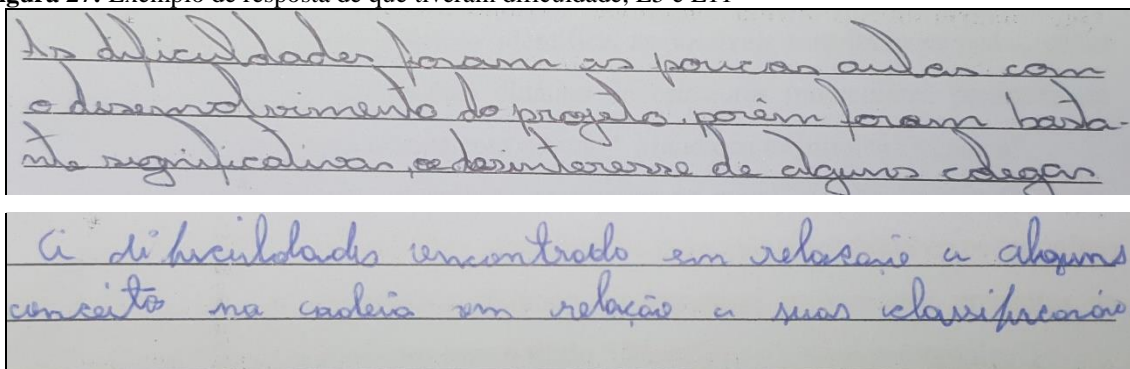 gura 27: Exemplo de resposta de que tiveram dificuldade, E5 e E11
As dificuldades foram as poucas aulas com
o desenvolvimento do projeto, porém foram basta-
nte significativas, e desinteresse de alguns colegas
A dificuldades encontrado em relação a alguns
conceito na cadeia em relação a suas classificação